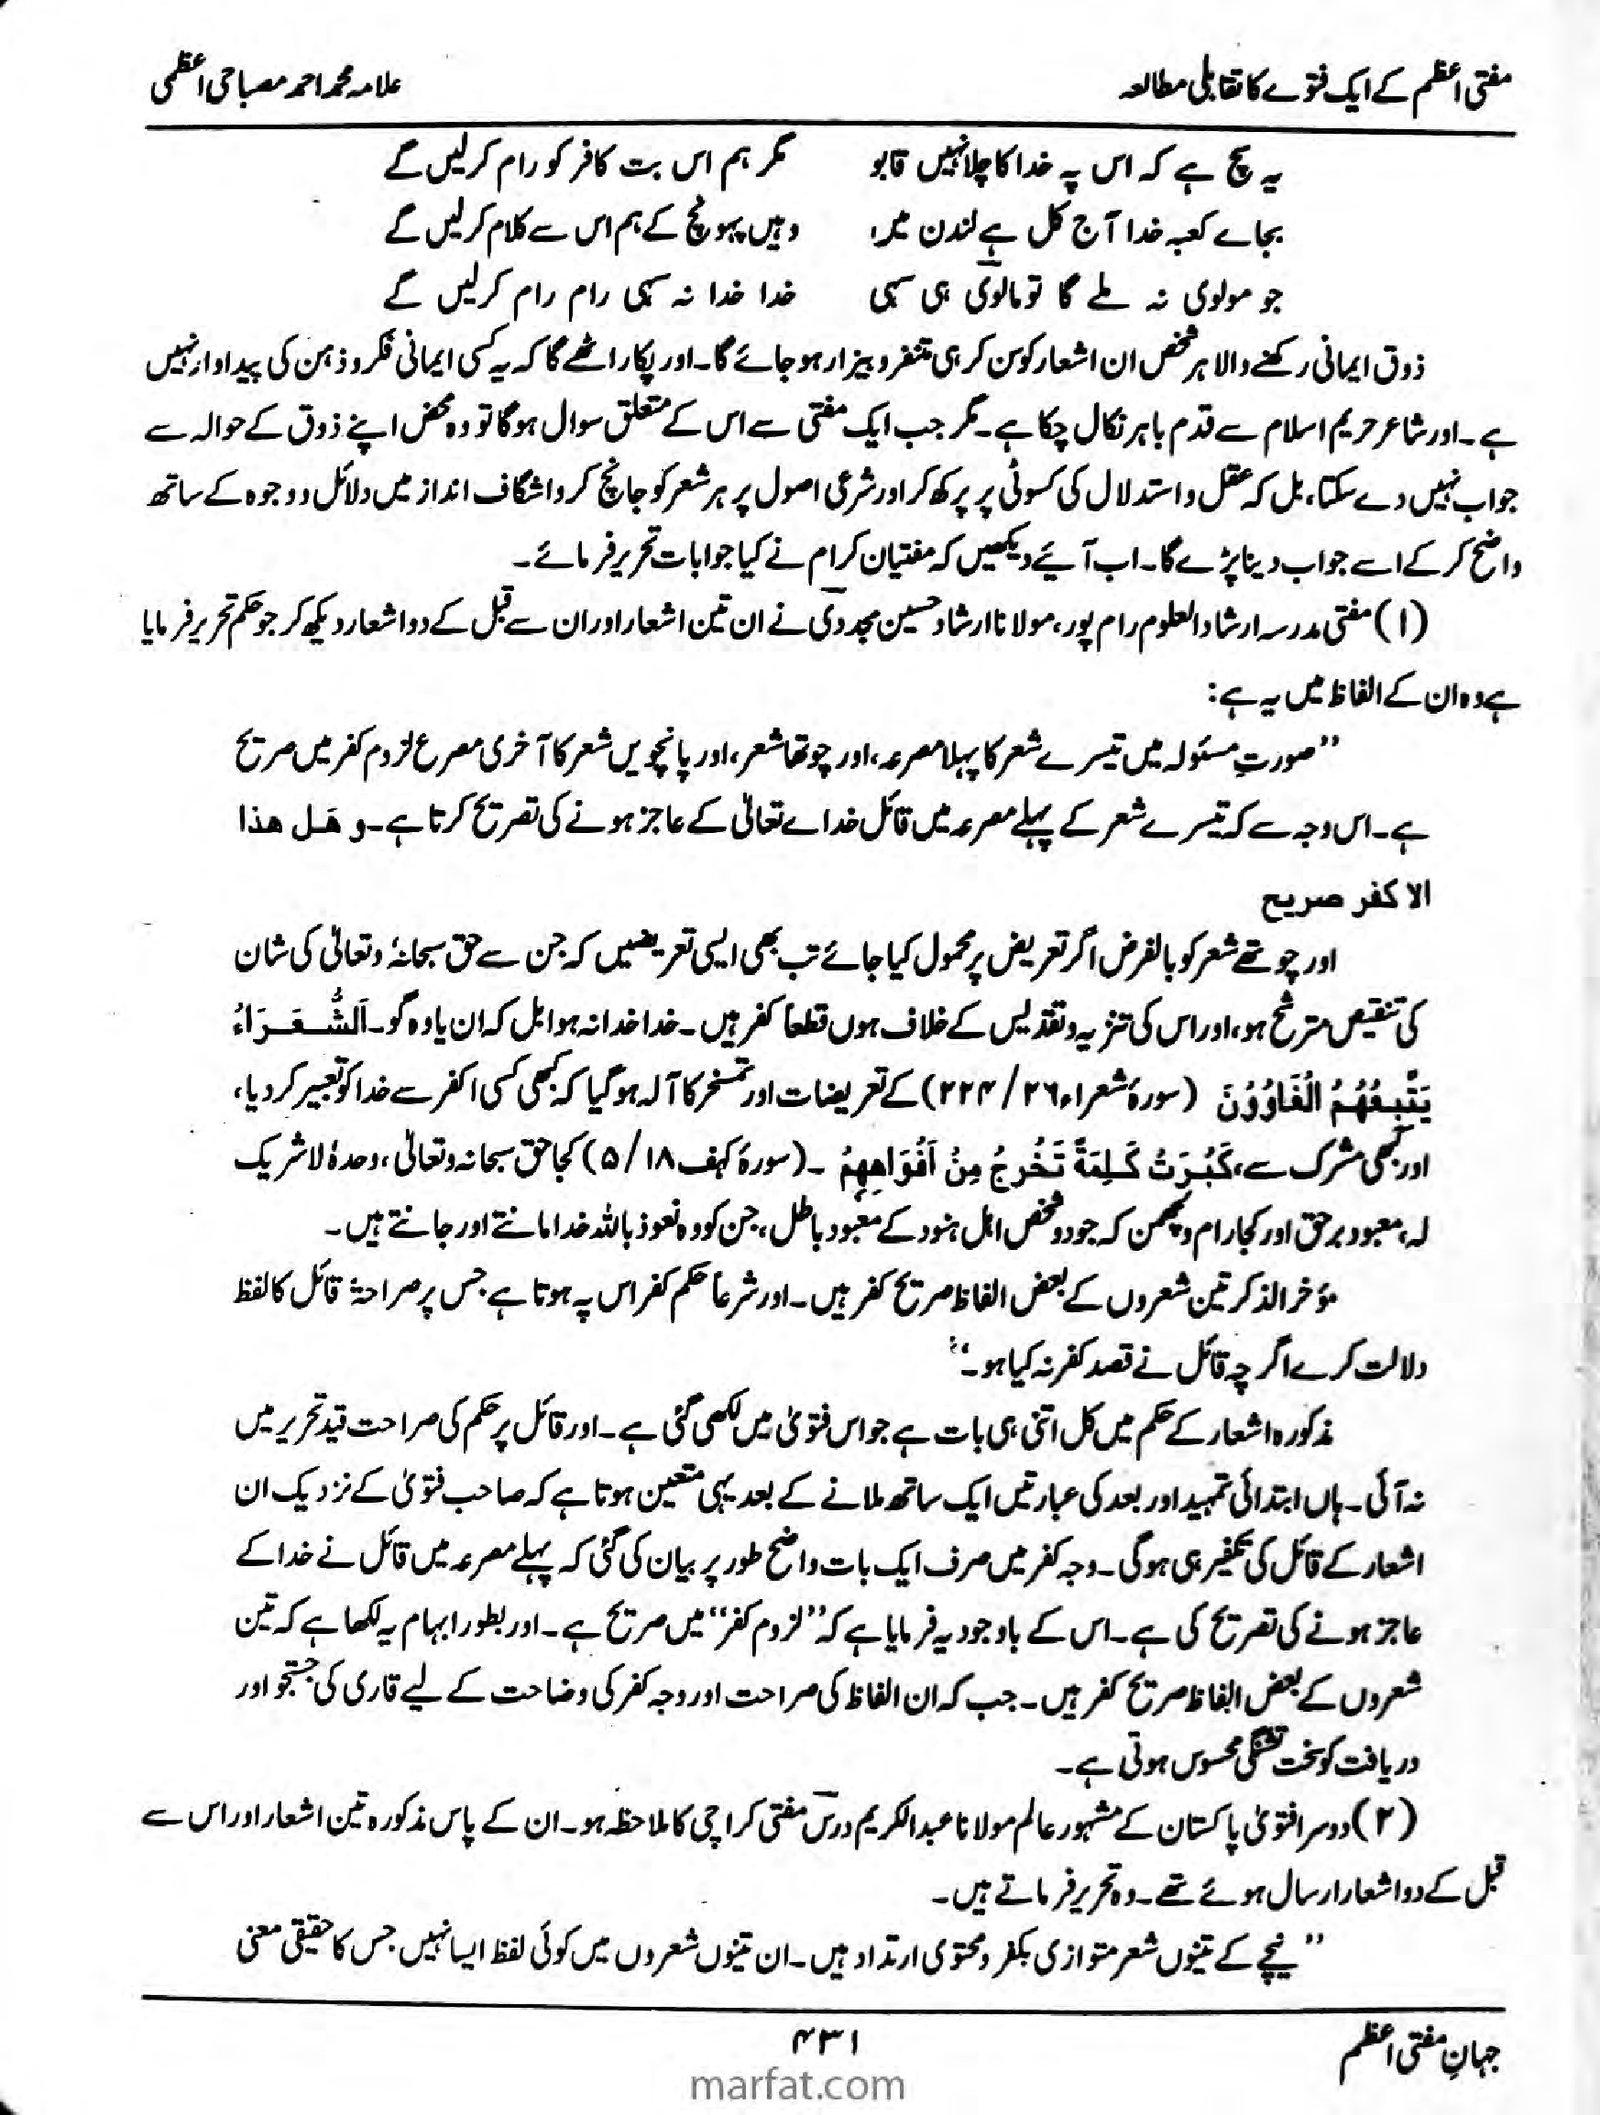 مفتی اعظم کے ایک فتوے کا تقابلی مطالعہ علامہ محمد احمد مصباحی اعظمی
یہ سچ ہے کہ اس پہ خدا کا چلا نہیں قابو مگر ہم اس بت کافر کو رام کر لیں گے
بجاے کعبہ خدا آج کل ہے لندن میں، وہیں پہونچ کے ہم اس سے کلام کر لیں گے
جو مولوی نہ ملے گا تو مالوی ہی سہی خدا خدا نہ سہی رام رام کر لیں گے
ذوق ایمانی رکھنے والا ہر شخص ان اشعار کو سن کر ہی متنفر و بیزار ہو جائے گا۔ اور پکار اٹھے گا کہ یہ کسی ایمانی فکر و ذہن کی پیداوار نہیں
ہے۔ اور شاعر حریم اسلام سے قدم باہر نکال چکا ہے۔ مگر جب ایک مفتی سے اس کے متعلق سوال ہوگا تو وہ محض اپنے ذوق کے حوالہ سے
جواب نہیں دے سکتا، بل کہ عقل و استدلال کی کسوٹی پر پرکھ کر اور شرعی اصول پر ہر شعر کو جانچ کر واشگاف انداز میں دلائل و وجوہ کے ساتھ
واضح کر کے اسے جواب دینا پڑے گا۔ اب آیئے دیکھیں کہ مفتیان کرام نے کیا جوابات تحریر فرمائے۔
(۱) مفتی مدرسہ ارشاد العلوم رام پور، مولانا ارشاد حسین مجددی نے ان تین اشعار اور ان سے قبل کے دو اشعار دیکھ کر جو حکم تحریر فرمایا
ہے وہ ان کے الفاظ میں یہ ہے:
”صورتِ مسئولہ میں تیسرے شعر کا پہلا مصرعہ، اور چوتھا شعر، اور پانچویں شعر کا آخری مصرع لزوم کفر میں صریح
ہے۔ اس وجہ سے کہ تیسرے شعر کے پہلے مصرعہ میں قائل خداے تعالیٰ کے عاجز ہونے کی تصریح کرتا ہے۔ و ھَل ھذا
الا کفر صریح
اور چوتھے شعر کو بالفرض اگر تعریض پر محمول کیا جائے تب بھی ایسی تعریضیں کہ جن سے حق سبحانہٗ و تعالیٰ کی شان
کی تنقیص مترشح ہو، اور اس کی تنزیہ و تقدیس کے خلاف ہوں قطعاً کفر ہیں۔ خدا خدا نہ ہوا بل کہ ان یاوہ گو۔ اَلشُّعَرَاءُ
یَتَّبِعُهُمُ الْغَاوُوْنَ (سورۂ شعراء ۲۶/ ۲۲۴) کے تعریضات اور تمسخر کا آلہ ہو گیا کہ کبھی کسی اکفر سے خدا کو تعبیر کر دیا،
اور کبھی مشرک سے، کَبُرَتْ کَلِمَةً تَخْرُجُ مِنْ اَفْوَاهِهِمْ ۔ (سورۂ کہف ۱۸/ ۵) کجا حق سبحانہ و تعالیٰ، وحدہٗ لا شریک
لہ، معبود برحق اور کجا رام و لچھمن کہ جو دو شخص اہل ہنود کے معبود باطل، جن کو وہ نعوذ باللہ خدا مانتے اور جانتے ہیں۔
مؤخر الذکر تین شعروں کے بعض الفاظ صریح کفر ہیں۔ اور شرعاً حکم کفر اس پہ ہوتا ہے جس پر صراحۃً قائل کا لفظ
دلالت کرے اگر چہ قائل نے قصد کفر نہ کیا ہو۔“
مذکورہ اشعار کے حکم میں کل اتنی ہی بات ہے جو اس فتویٰ میں لکھی گئی ہے۔ اور قائل پر حکم کی صراحت قید تحریر میں
نہ آئی۔ ہاں ابتدائی تمہید اور بعد کی عبارتیں ایک ساتھ ملانے کے بعد یہی متعین ہوتا ہے کہ صاحب فتویٰ کے نزدیک ان
اشعار کے قائل کی تکفیر ہی ہوگی۔ وجہ کفر میں صرف ایک بات واضح طور پر بیان کی گئی کہ پہلے مصرعہ میں قائل نے خدا کے
عاجز ہونے کی تصریح کی ہے۔ اس کے باوجود یہ فرمایا ہے کہ ”لزوم کفر“ میں صریح ہے۔ اور بطور ابہام یہ لکھا ہے کہ تین
شعروں کے بعض الفاظ صریح کفر ہیں۔ جب کہ ان الفاظ کی صراحت اور وجہ کفر کی وضاحت کے لیے قاری کی جستجو اور
دریافت کو سخت تشنگی محسوس ہوتی ہے۔
(۲) دوسرا فتویٰ پاکستان کے مشہور عالم مولانا عبد الکریم درس مفتی کراچی کا ملاحظہ ہو۔ ان کے پاس مذکورہ تین اشعار اور اس سے
قبل کے دو اشعار ارسال ہوئے تھے۔ وہ تحریر فرماتے ہیں۔
”نیچے کے تینوں شعر متوازی بکفر و محتوی ارتداد ہیں۔ ان تینوں شعروں میں کوئی لفظ ایسا نہیں جس کا حقیقی معنی
جہانِ مفتی اعظم
۴۳۱
marfat.com